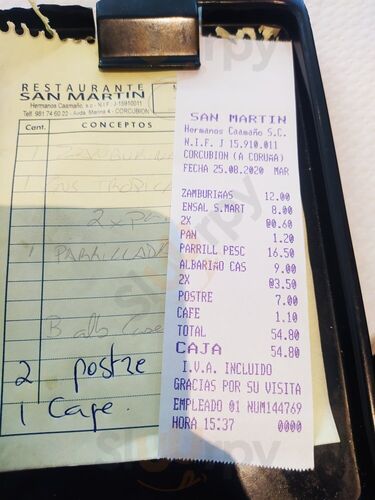 RESTAURANTE
SAN MARTIN
Hermanos Caamaño, s.c - N.I.F. J-15910011
Telf. 981 74 60 22 - Avda. Marina 4 - CORCUBION
Cant. CONCEPTOS
1
1
2 x Pan
1 PARRILLADA
B alb Case
2 postre
1 Cafe.
SAN MARTIN
Hermanos Caamaño S.C.
N.I.F. J 15.910.011
CORCUBION (A CORUÑA)
FECHA 25.08.2020 MAR
ZAMBURIÑAS 12.00
ENSAL S.MART 8.00
2X @0.60
PAN 1.20
PARRILL PESC 16.50
ALBARIÑO CAS 9.00
2X @3.50
POSTRE 7.00
CAFE 1.10
TOTAL 54.80
CAJA 54.80
I.V.A. INCLUIDO
GRACIAS POR SU VISITA
EMPLEADO 01 NUM144769
HORA 15:37 0000